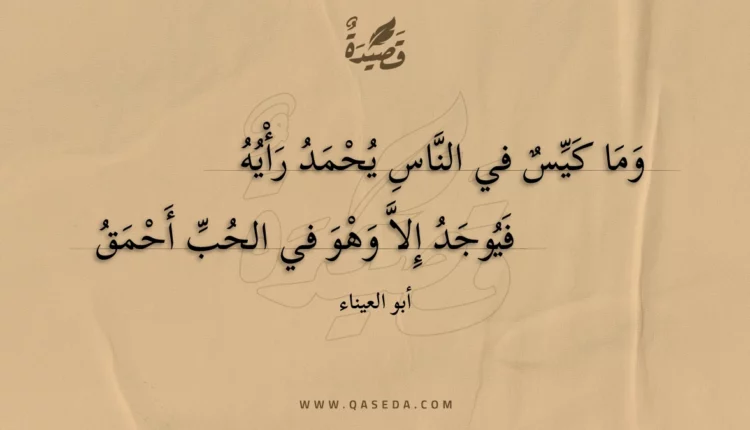 قَصِيْدَةٌ
وَمَا كَيِّسٌ في النَّاسِ يُحْمَدُ رَأْيُهُ
فَيُوجَدُ إِلاَّ وَهْوَ في الحُبِّ أَحْمَقُ
أبو العيناء
WWW.QASEDA.COM